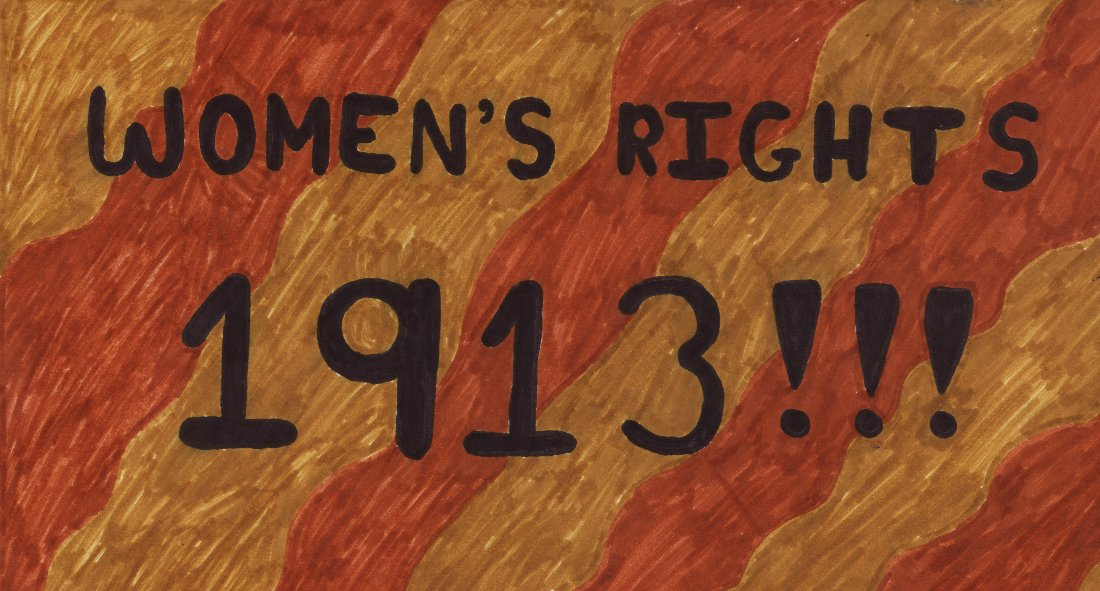 WOMEN'S RIGHTS
1913!!!